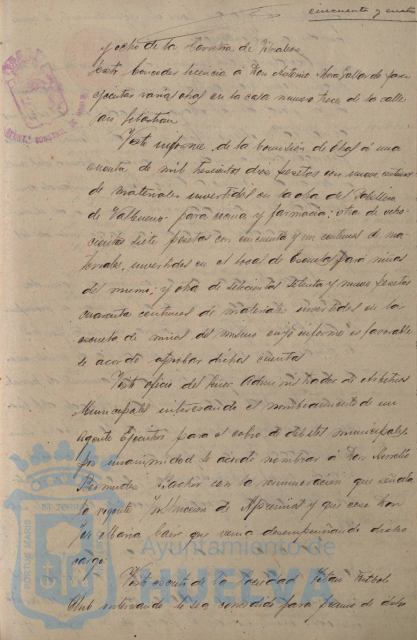 cincuenta y cuatro
y ocho de la
conceder licencia á Don Antonio para
ejecutar varias obras en la casa número trece de la calle
San Sebastian
Visto informe de la Comisión de á una
cuenta de mil trescientas diez pesetas con nueve centimos
de materiales invertidos en la obra del
de para y farmacia; otra de ocho-
cientas siete pesetas con cincuenta y un centimos de ma-
teriales, invertidos en el local de Escuelas para niñas
del mismo; y otra de setecientas setenta y nueve pesetas
cuarenta centimos de materiales invertidos en la
escuela de niños del mismo cuyo informe es favorable
se acordó aprobar dichas cuentas
Visto oficio del Señor Administrador de Arbitrios
Municipales interesando el nombramiento de un
agente Ejecutivo para el cobro de debitos municipales
por unanimidad se acordó nombrar á Don
Bermudez con la remuneración que señala
la vigente Instrucción de Apremios y que cese Don
José que venia desempeñando dicho
cargo.
Visto escrito de la Sociedad Titán Football
Club interesando le sea concedido para premio de
Ayuntamiento de
HUELVA
PORTUS MARIS